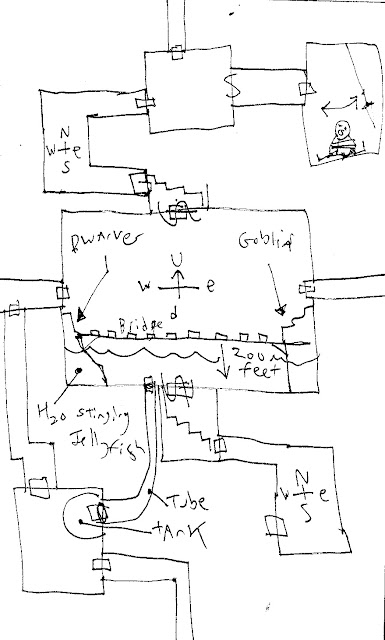 S
N
W e
S
Dwarves
Goblin
U
W e
d
Bridge
200
feet
H2O stinging
Jelly fish
N
W e
S
Tube
tank